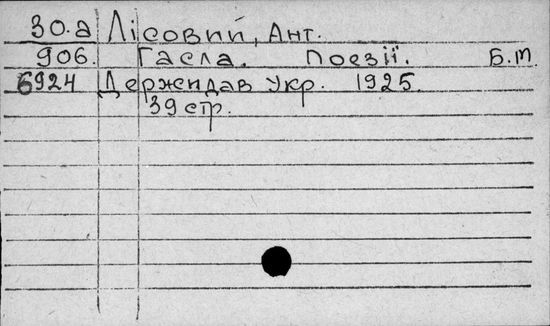 30.а Лісовий, Ант.
906. Гасла. Поезії. Б.м.
6924 Держидав Укр. 1925.
39 стр.